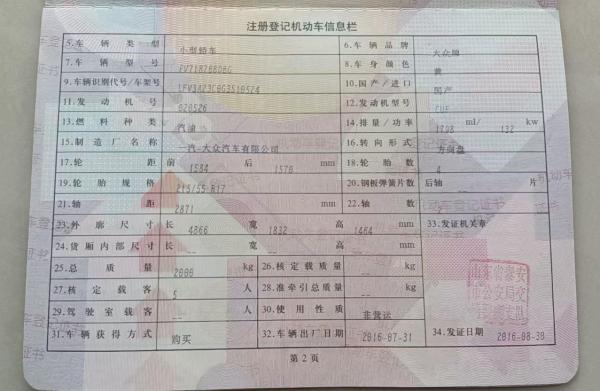 注册登记机动车信息栏
5.车辆类型 小型轿车 6.车辆品牌 大众牌
7.车辆型号 8.车身颜色 黄
9.车辆识别代号/车架号 10.国产/进口 国产
11.发动机号 020526 12.发动机型号 CUF
13.燃料种类 汽油 14.排量/功率 1798 ml/ 132 kw
15.制造厂名称 一汽-大众汽车有限公司 16.转向形式 方向盘
17.轮距 前 1584 后 1576 mm 18.轮胎数 4
19.轮胎规格 215/55 R17 20.钢板弹簧片数 后轴 片
21.轴距 2871 mm 22.轴数 2
23.外廓尺寸 长 4866 宽 1832 高 1464 mm 33.发证机关章
24.货厢内部尺寸 长 -- 宽 -- 高 -- mm
25.总质量 2000 kg 26.核定载质量 -- kg
27.核定载客 5 人 28.准牵引总质量 -- kg
29.驾驶室载客 -- 人 30.使用性质 非营运
31.车辆获得方式 购买 32.车辆出厂日期 2016-07-31 34.发证日期 2016-08-30
第2页